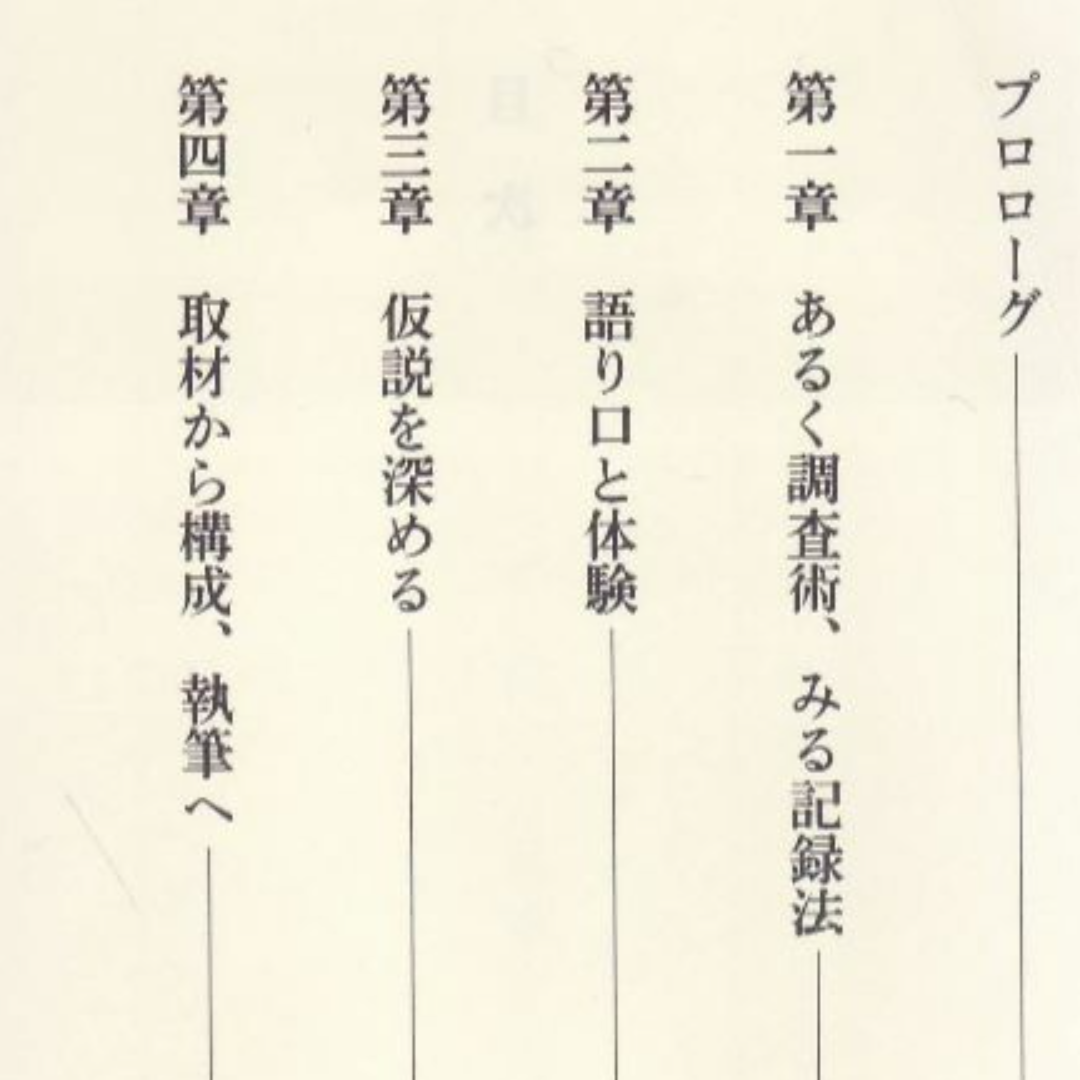 プロローグ
第一章　あるく調査術、みる記録法
第二章　語り口と体験
第三章　仮説を深める
第四章　取材から構成、執筆へ